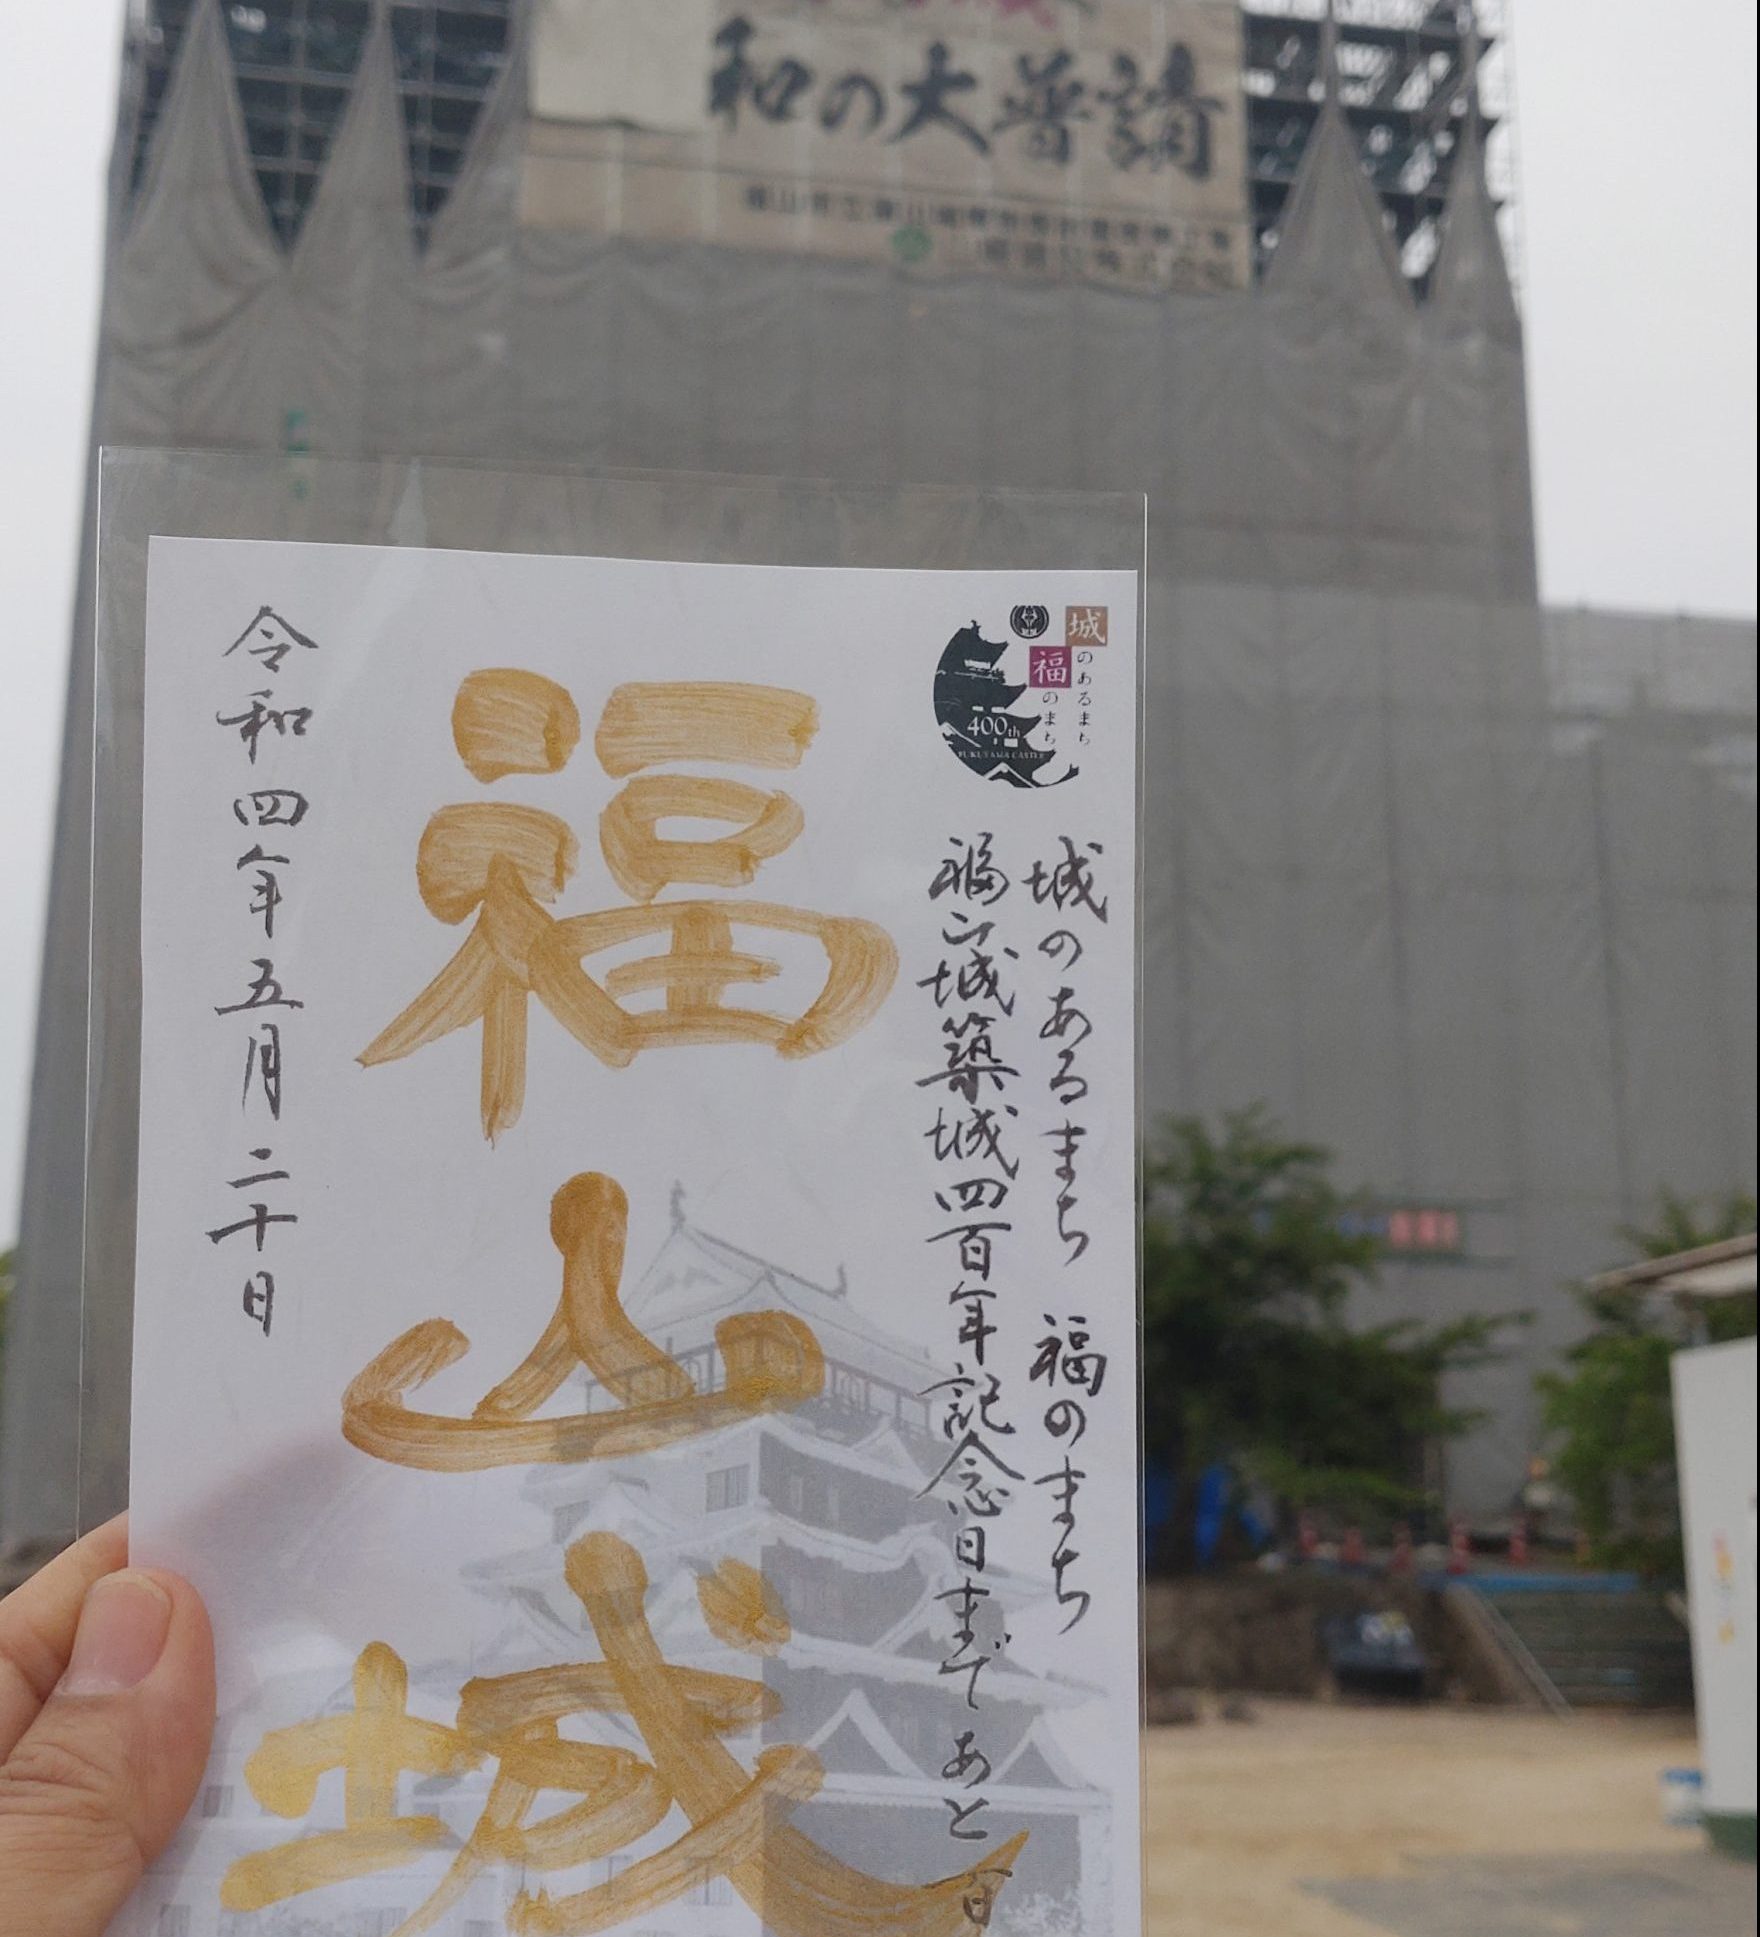 和の大普請
城のあるまち
福のまち
400th
FUKUYAMA CASTLE
城のあるまち 福のまち
福山城築城四百年記念日まであと百
福山城
令和四年五月二十日